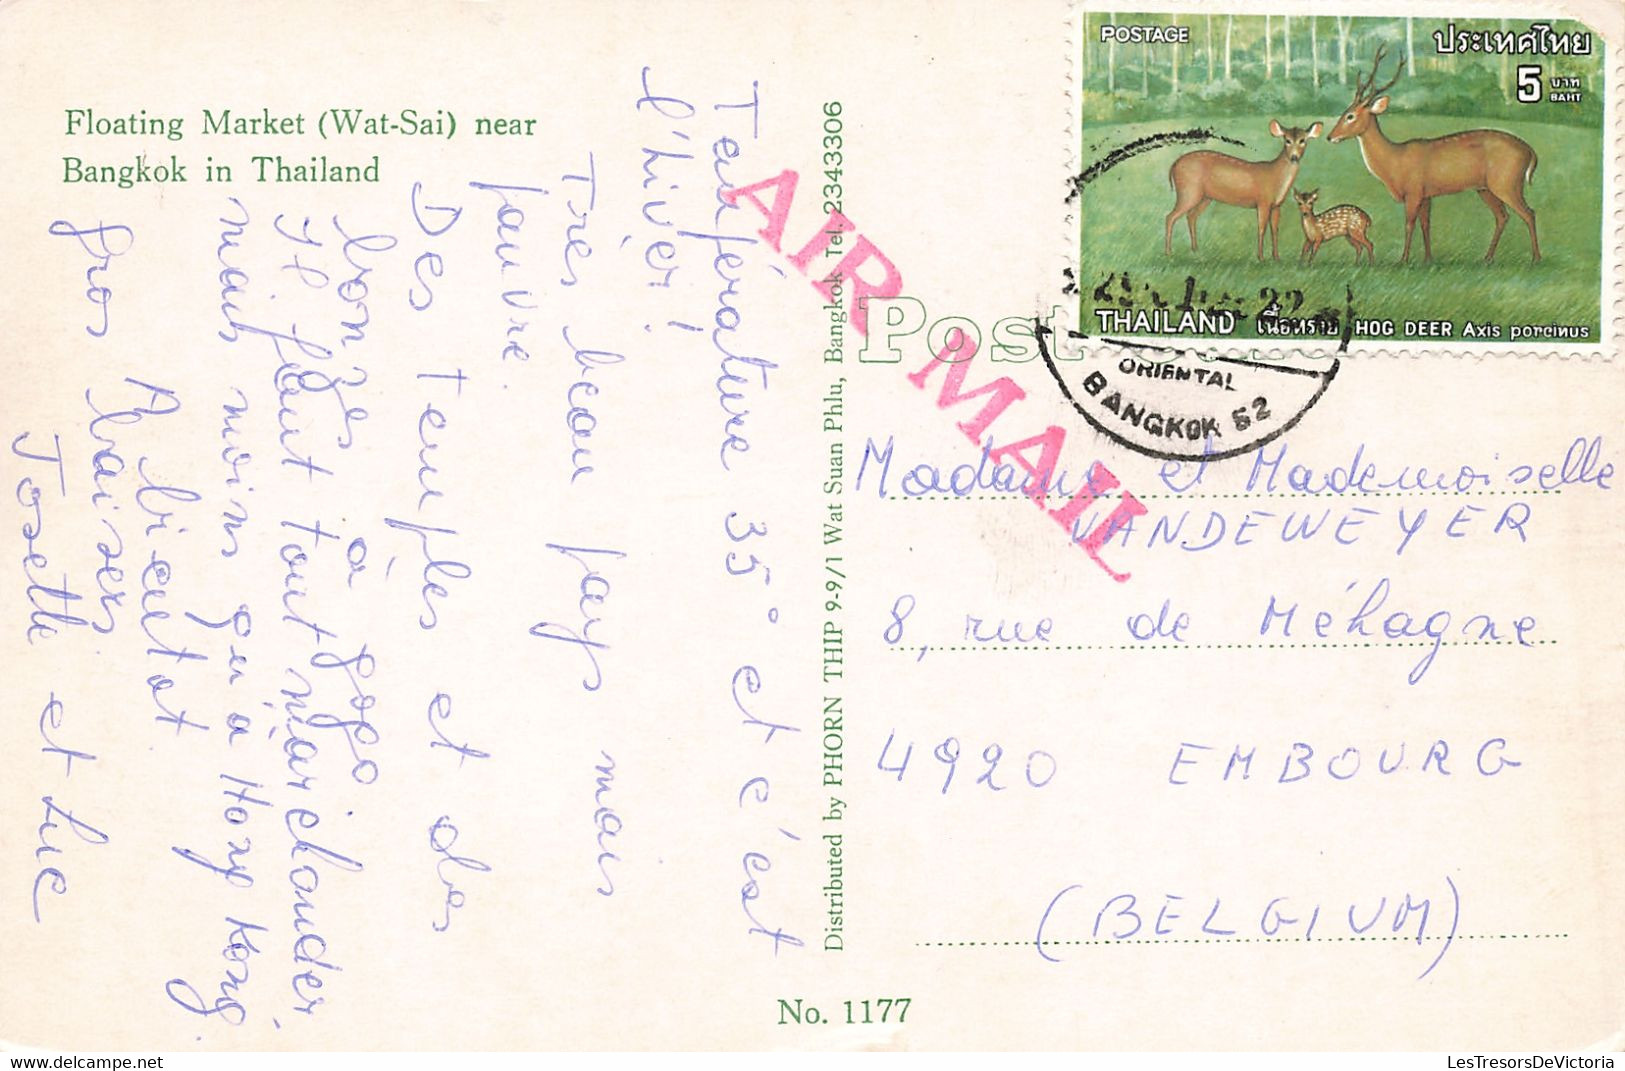 Floating Market (Wat-Sai) near
Bangkok in Thailand
Température 35° et c'est
l'hiver!
Très beau pays mais
pauvre.
Des temples et des
bonzes à gogo
Il faut tout marchander
mais moins qu'à Hong Kong.
A bientôt
Gros baisers
Josette et Luc
Distributed by PHORN THIP 9-9/1 Wat Suan Phlu, Bangkok Tel. 2343306
No. 1177
AIR MAIL
Post
POSTAGE
ประเทศไทย
5 บาท
BAHT
THAILAND เนื้อทราย HOG DEER Axis porcinus
ORIENTAL
BANGKOK 52
Madame et Mademoiselle
VANDEWEYER
8, rue de Méhagne
4920 EMBOURG
(BELGIUM)
LesTresorsDeVictoria